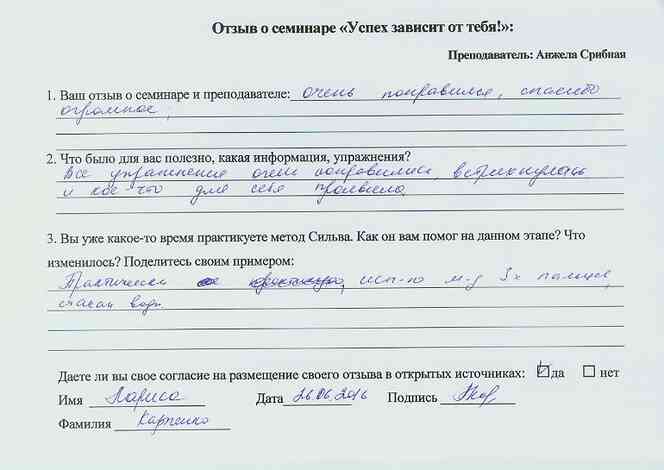 Отзыв о семинаре «Успех зависит от тебя!»:
Преподаватель: Анжела Срибная
1. Ваш отзыв о семинаре и преподавателе: очень понравился, спасибо
огромное.
2. Что было для вас полезно, какая информация, упражнения?
Все упражнения очень понравились, встрехнулась
и кое-что для себя прояснила
3. Вы уже какое-то время практикуете метод Сильва. Как он вам помог на данном этапе? Что
изменилось? Поделитесь своим примером:
Практически не исп-ю м-д 3х пальцев,
стакан воды
Даете ли вы свое согласие на размещение своего отзыва в открытых источниках: да нет
Имя Лариса Дата 26.06.2016 Подпись
Фамилия Карпенко